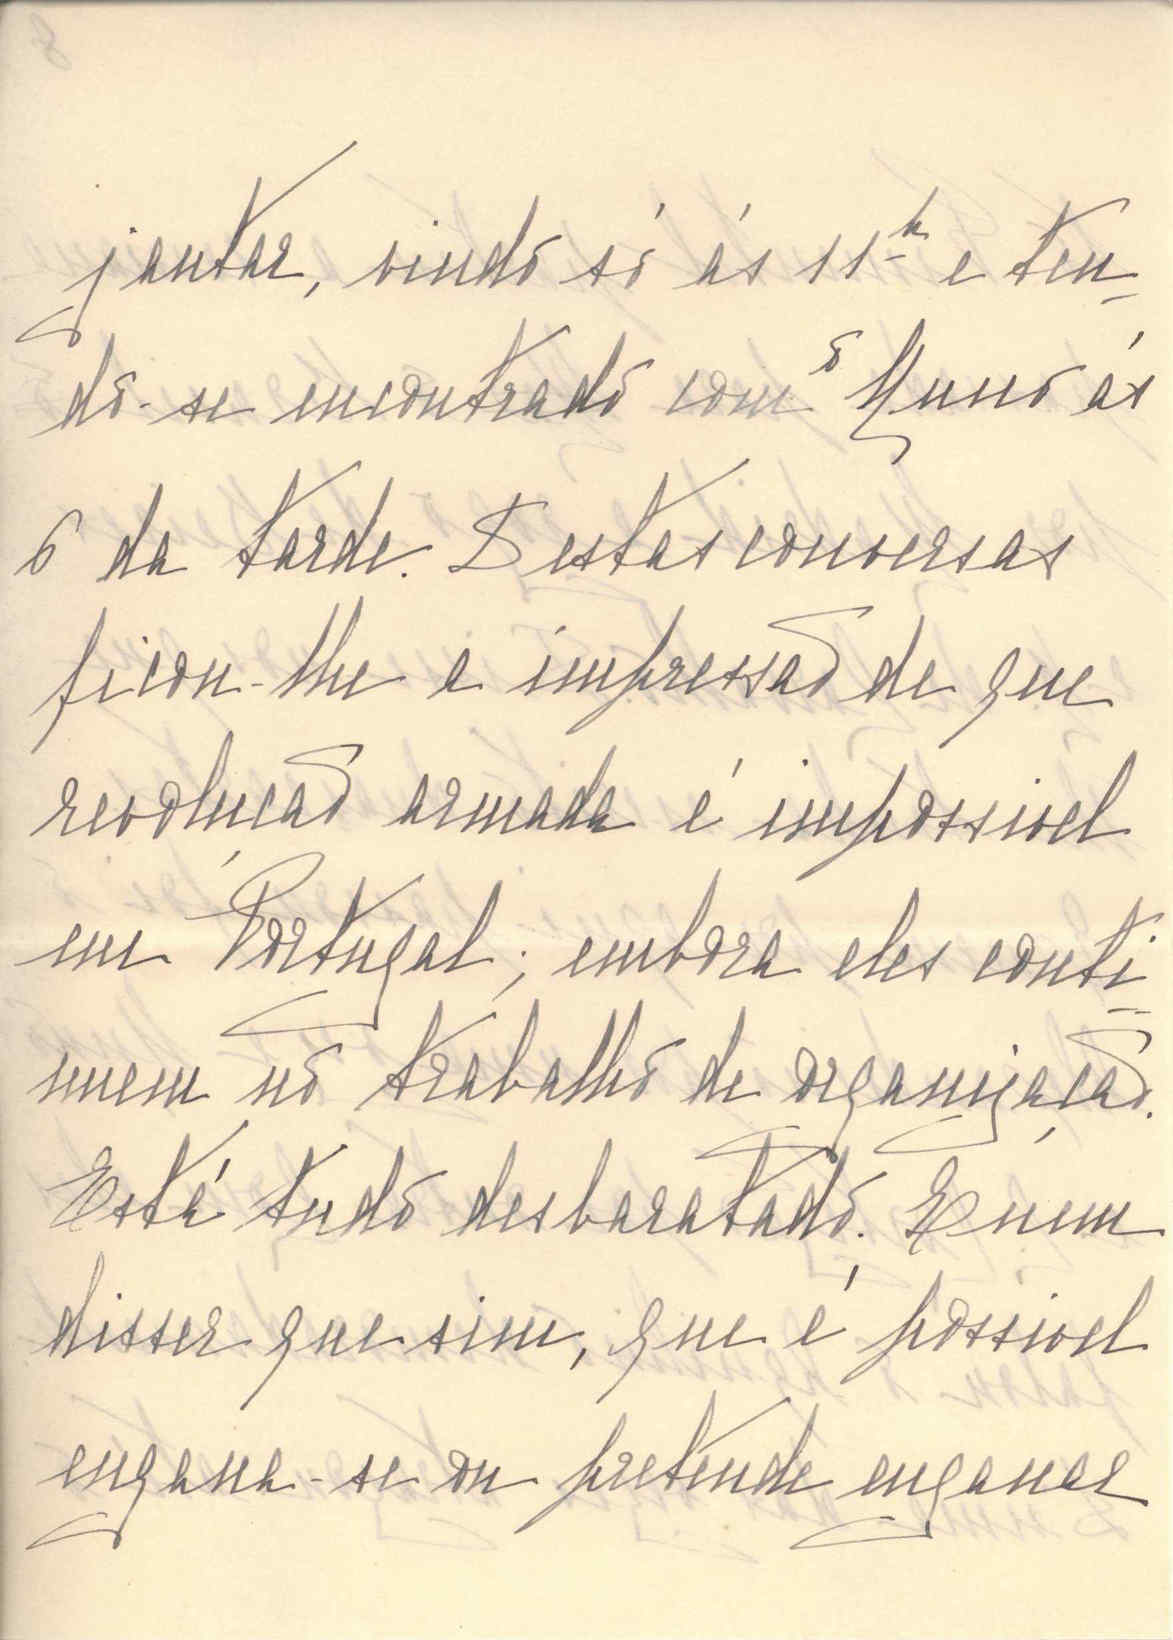 jantar, vindo só ás 11h e ten-
do-se encontrado com o Nuno ás
6 da tarde. Destas conversas
ficou-lhe a impressão de que
revolução armada é impossivel
em Portugal; embora eles conti-
nuem no trabalho de organização.
Está tudo desbaratado. Quem
disser que sim, que é possivel
engana-se ou pretende enganar